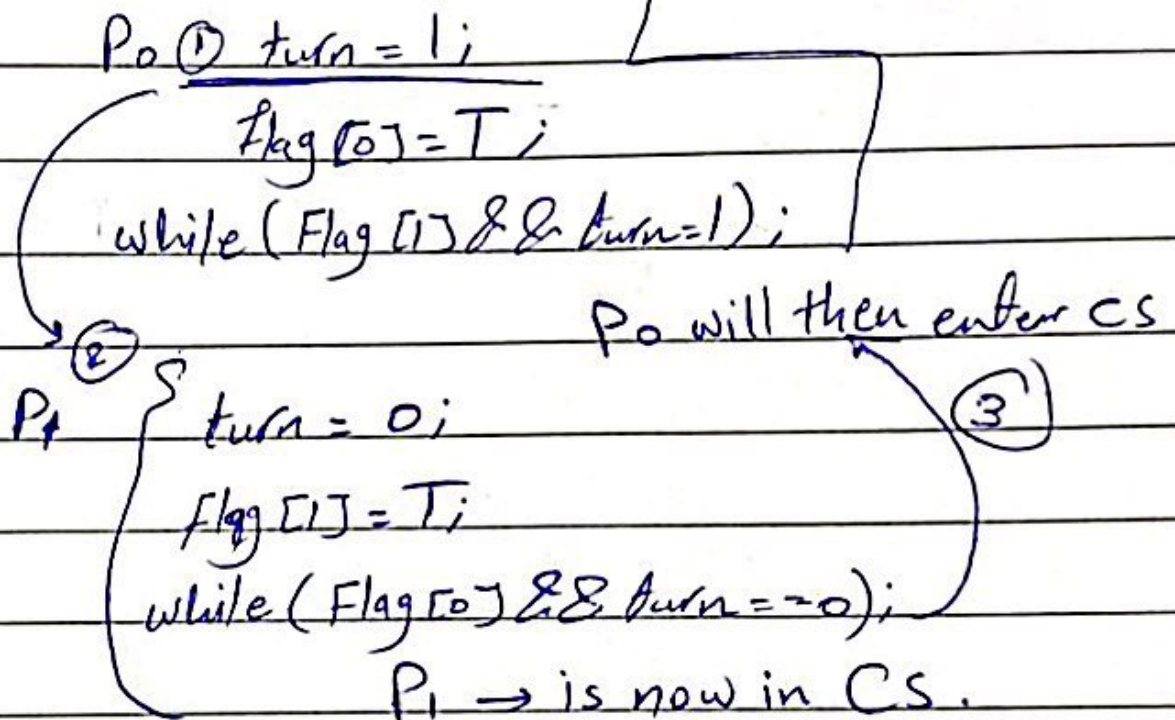 P0 ① turn = 1;
flag[0] = T;
while (Flag[1] && turn=1);
P0 will then enter CS
②
③
P1 { turn = 0;
flag[1] = T;
while (Flag[0] && turn==0);
P1 → is now in CS.